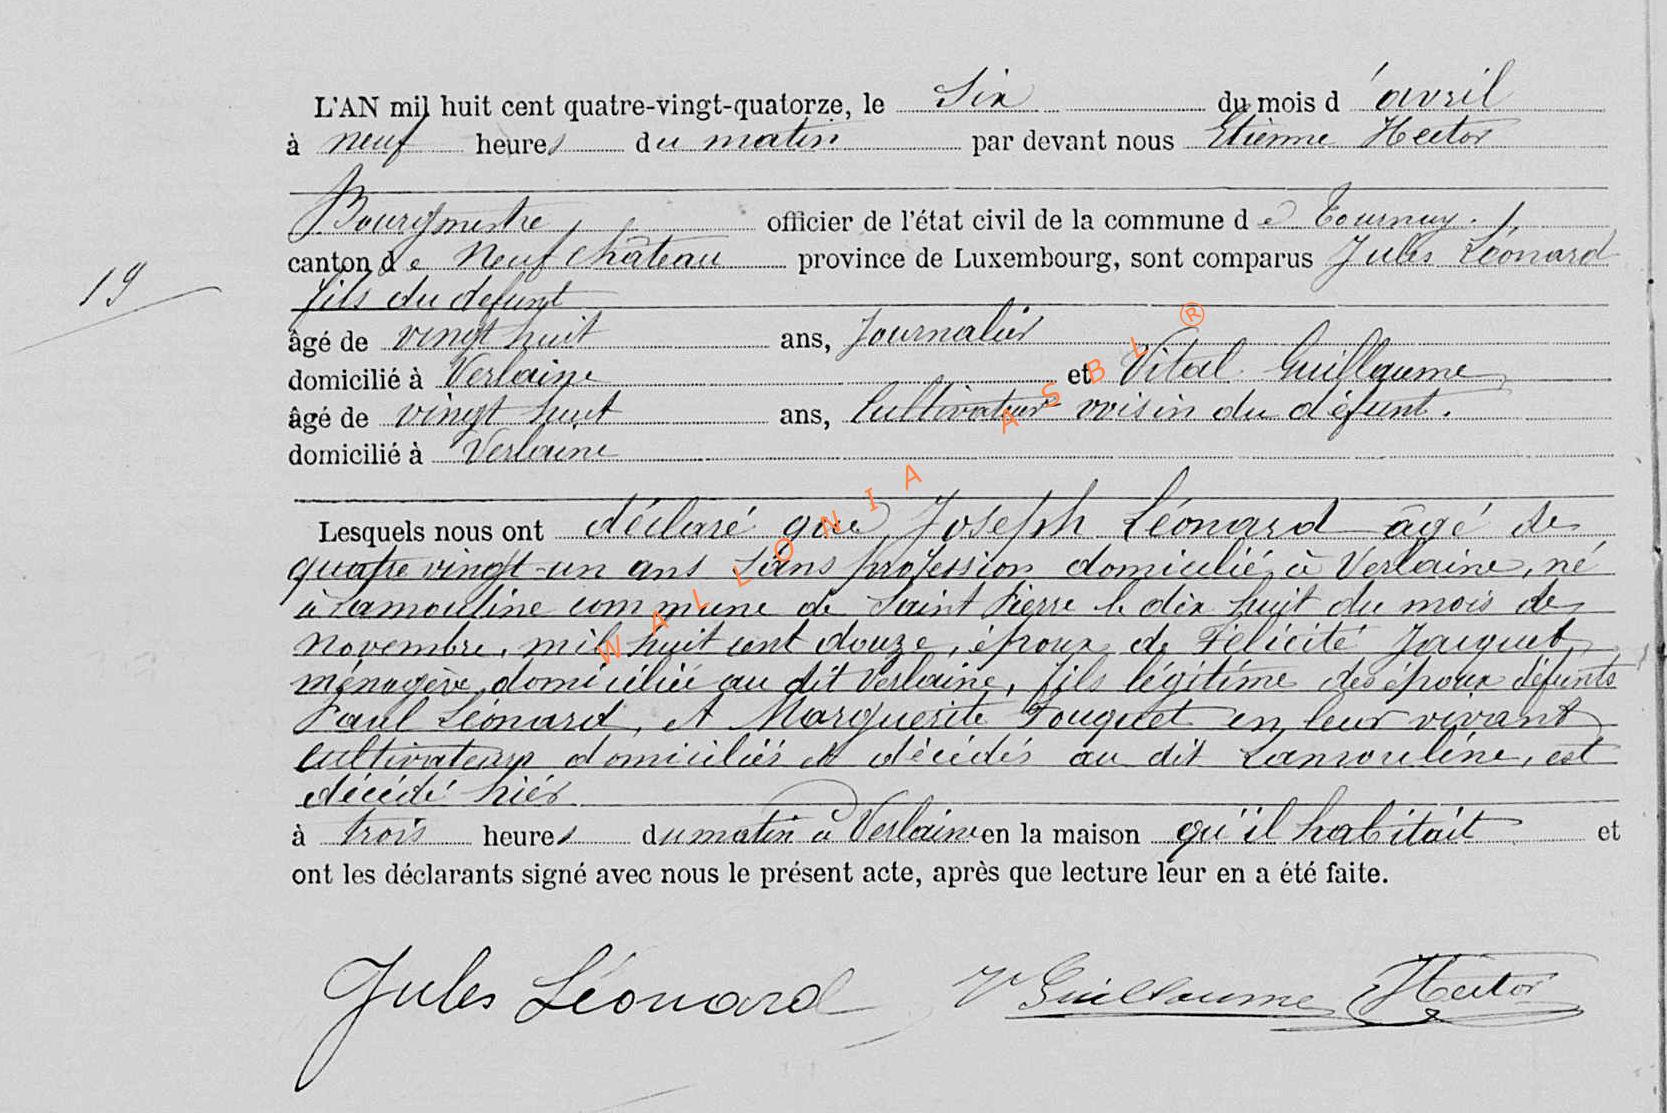 L'AN mil huit cent quatre-vingt-quatorze, le Six du mois d'avril
à neuf heures du matin par devant nous Etienne Hector
Bourgmestre officier de l'état civil de la commune de Tournay.
canton de Neufchâteau province de Luxembourg, sont comparus Jules Léonard
fils du defunt
19
âgé de vingt huit ans, Journalier
domicilié à Verlaine et Vital Guillaume
âgé de vingt huit ans, Cultivateur voisin du défunt.
domicilié à Verlaine
Lesquels nous ont déclaré que Joseph Léonard âgé de
quatre vingt-un ans sans profession domicilié à Verlaine, né
à Lamouline commune de Saint Pierre le dix huit du mois de
Novembre, mil huit cent douze, époux de Félicité Jacquet,
ménagère domiciliée au dit Verlaine, fils légitime des époux défunts
Paul Léonard, et Marguerite Fouquet en leur vivant
cultivateurs domiciliés et décédés au dit Lamouline, est
décédé hier
à trois heures du matin à Verlaine en la maison qu'il habitait et
ont les déclarants signé avec nous le présent acte, après que lecture leur en a été faite.
Jules Léonard V Guillaume Hector
WALLONIA ASBL ®